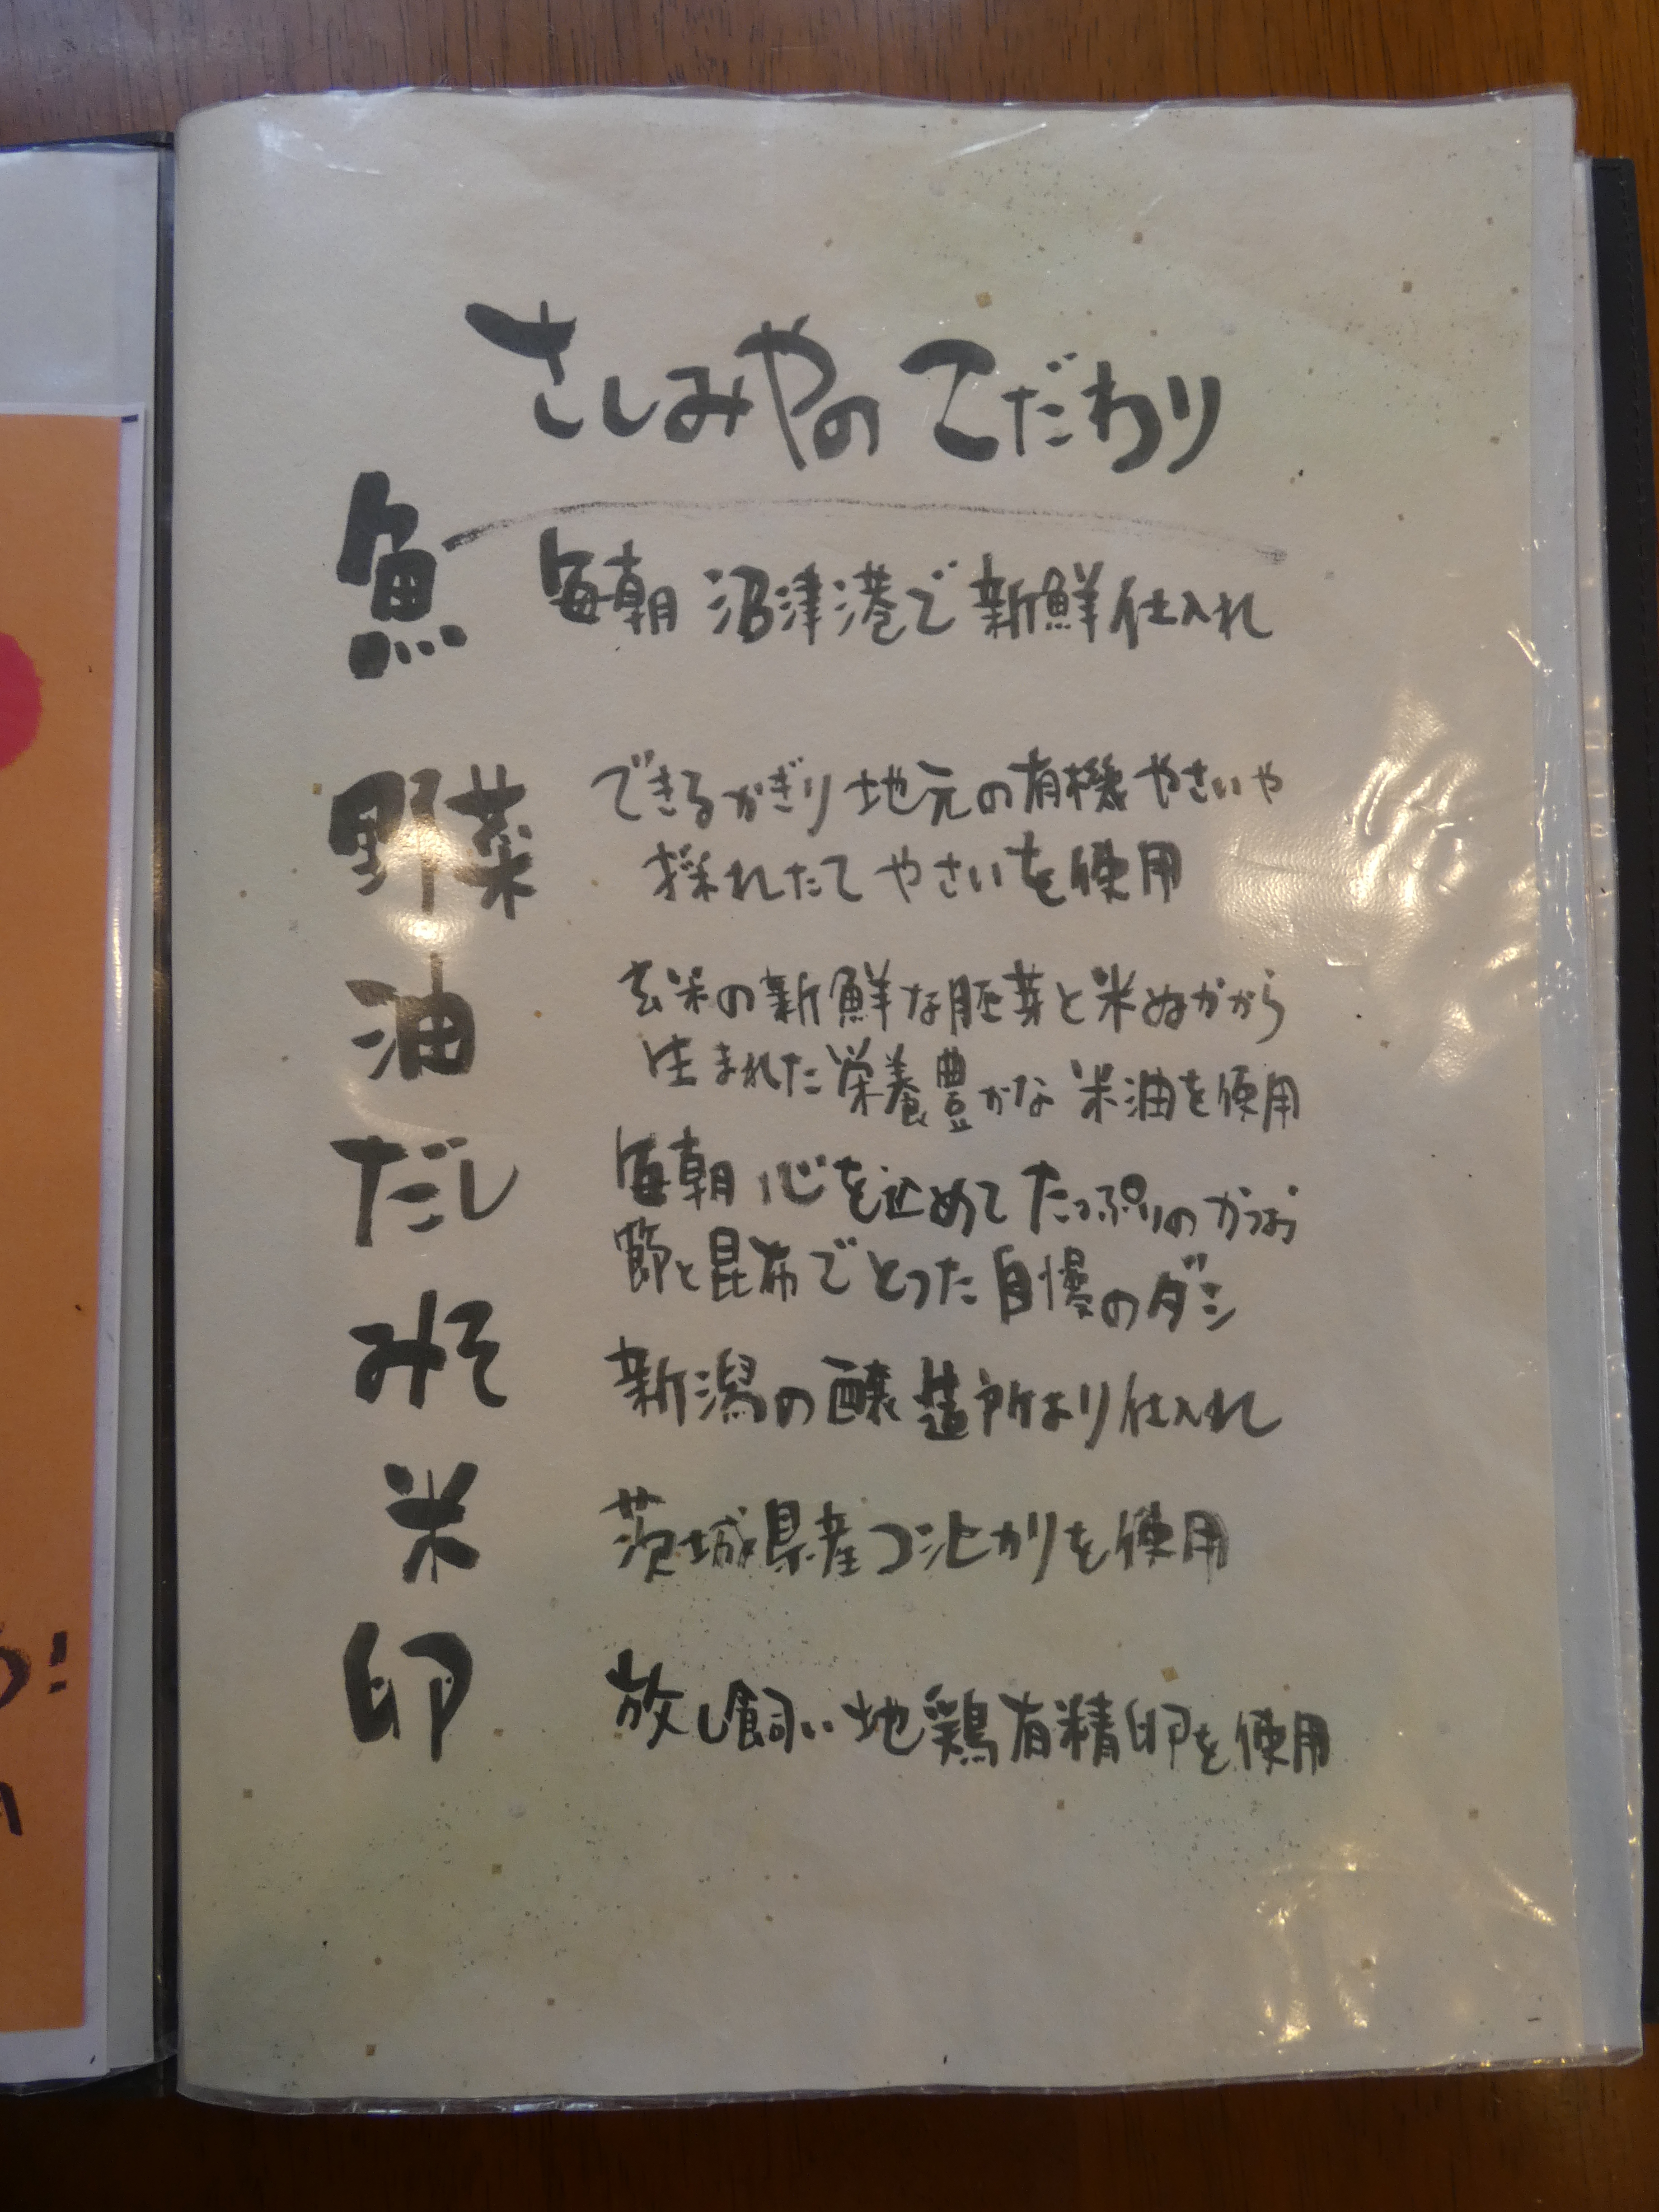 さしみやの こだわり
魚 毎朝 沼津港で 新鮮仕入れ
野菜 できるかぎり 地元の有機 やさいや
採れたて やさいを使用
油 玄米の新鮮な胚芽と米ぬかから
生まれた栄養豊かな 米油を使用
だし 毎朝 心を込めて たっぷりの かつお
節と昆布でとった 自慢のダシ
みそ 新潟の醸造所より仕入れ
米 茨城県産コシヒカリを使用
卵 放し飼い 地鶏有精卵を使用